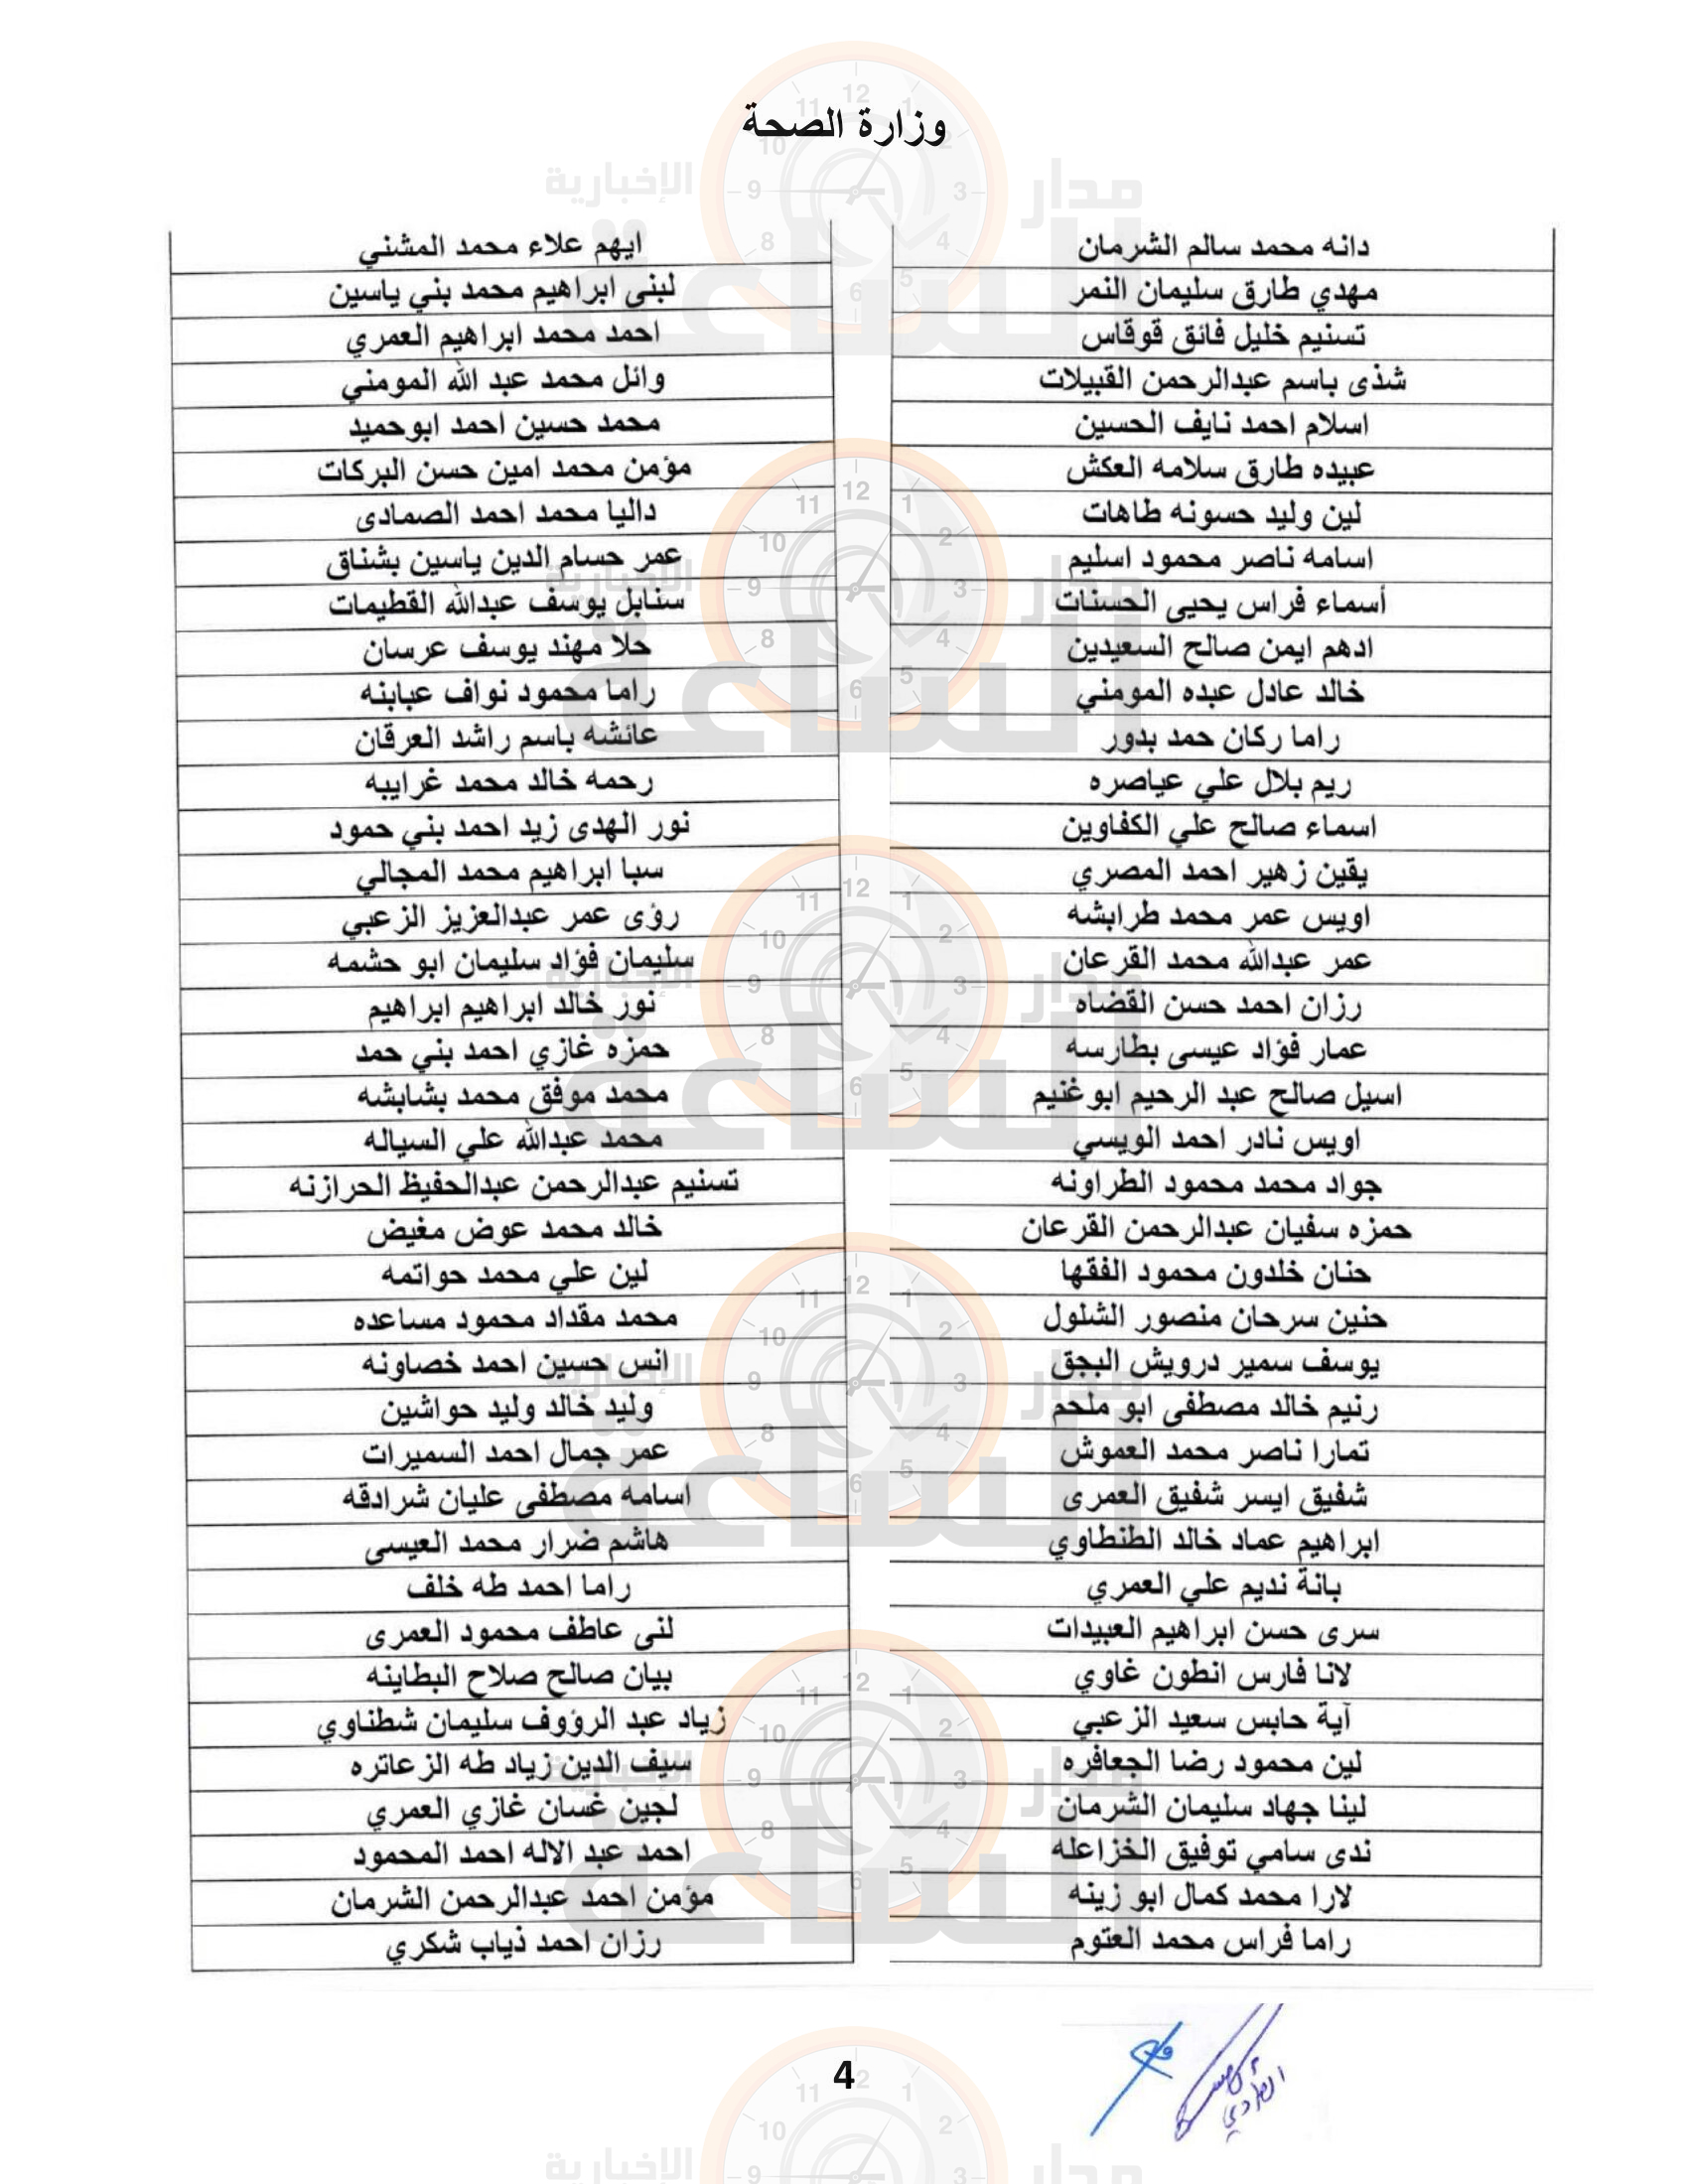 وزارة الصحة
دانه محمد سالم الشرمان
مهدي طارق سليمان النمر
تسنيم خليل فائق قوقاس
شذى باسم عبدالرحمن القبيلات
اسلام احمد نايف الحسين
عبيده طارق سلامه العكش
لين وليد حسونه طاهات
اسامه ناصر محمود اسليم
أسماء فراس يحيى الحسنات
ادهم ايمن صالح السعيدين
خالد عادل عبده المومني
راما ركان حمد بدور
ريم بلال علي عياصره
اسماء صالح علي الكفاوين
يقين زهير احمد المصري
اويس عمر محمد طرابشه
عمر عبدالله محمد القرعان
رزان احمد حسن القضاه
عمار فؤاد عيسى بطارسه
اسيل صالح عبد الرحيم ابوغنيم
اويس نادر احمد الويسي
جواد محمد محمود الطراونه
حمزه سفيان عبدالرحمن القرعان
حنان خلدون محمود الفقها
حنين سرحان منصور الشلول
يوسف سمير درويش البجق
رنيم خالد مصطفى ابو ملحم
تمارا ناصر محمد العموش
شفيق ايسر شفيق العمرى
ابراهيم عماد خالد الطنطاوي
بانة نديم علي العمري
سرى حسن ابراهيم العبيدات
لانا فارس انطون غاوي
آية حابس سعيد الزعبي
لين محمود رضا الجعافره
لينا جهاد سليمان الشرمان
ندى سامي توفيق الخزاعله
لارا محمد كمال ابو زينه
راما فراس محمد العتوم
ايهم علاء محمد المشني
لبنى ابراهيم محمد بني ياسين
احمد محمد ابراهيم العمري
وائل محمد عبد الله المومني
محمد حسين احمد ابوحميد
مؤمن محمد امين حسن البركات
داليا محمد احمد الصمادى
عمر حسام الدين ياسين بشناق
سنابل يوسف عبدالله القطيمات
حلا مهند يوسف عرسان
راما محمود نواف عبابنه
عائشه باسم راشد العرقان
رحمه خالد محمد غرايبه
نور الهدى زيد احمد بني حمود
سبا ابراهيم محمد المجالي
رؤى عمر عبدالعزيز الزعبي
سليمان فؤاد سليمان ابو حشمه
نور خالد ابراهيم ابراهيم
حمزه غازي احمد بني حمد
محمد موفق محمد بشابشه
محمد عبدالله علي السياله
تسنيم عبدالرحمن عبدالحفيظ الحرازنه
خالد محمد عوض مغيض
لين علي محمد حواتمه
محمد مقداد محمود مساعده
انس حسين احمد خصاونه
وليد خالد وليد حواشين
عمر جمال احمد السميرات
اسامه مصطفى عليان شرادقه
هاشم ضرار محمد العيسى
راما احمد طه خلف
لنى عاطف محمود العمرى
بيان صالح صلاح البطاينه
زياد عبد الرؤوف سليمان شطناوي
سيف الدين زياد طه الزعاتره
لجين غسان غازي العمري
احمد عبد الاله احمد المحمود
مؤمن احمد عبدالرحمن الشرمان
رزان احمد ذياب شكري
4